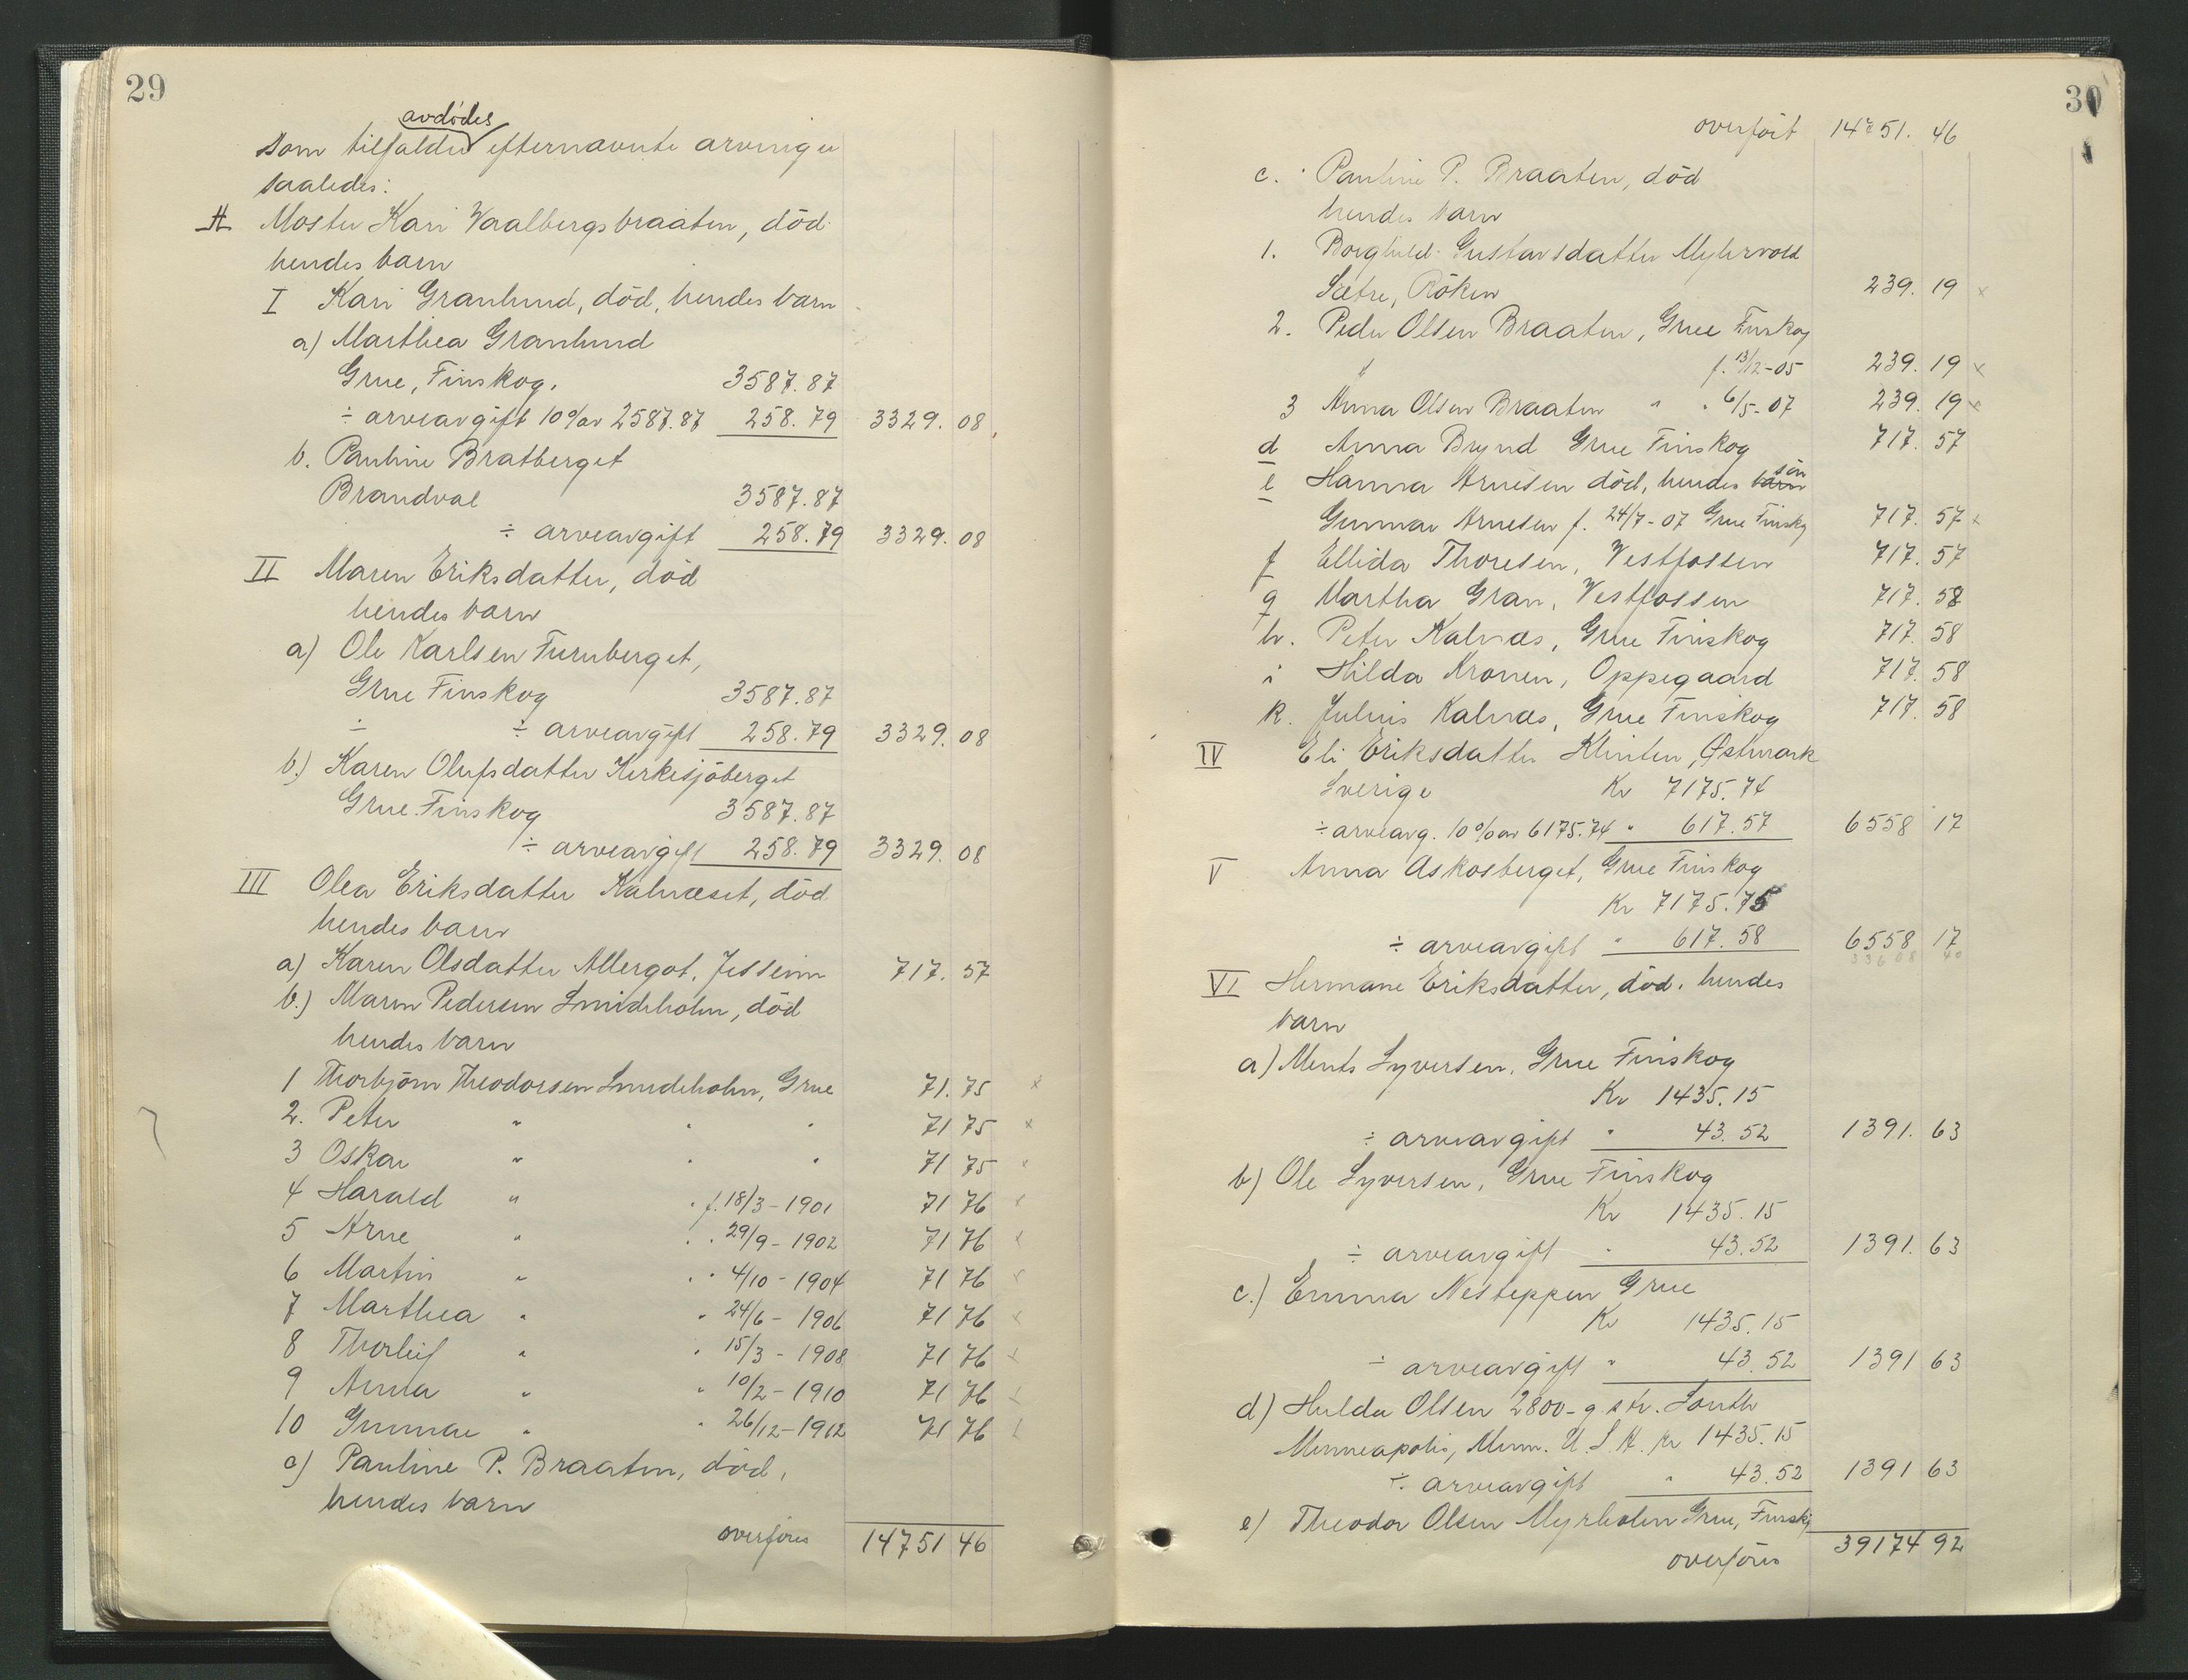 29
avdødes
som tilfalder efternævnte arvinger
saaledes:
A Moster Kari Vaalbergsbraaten, død
hendes barn
I Kari Granlund, død, hendes barn
a) Marthea Granlund
Grue, Finskog. 3587.87
÷ arveavgift 10% av 2587.87 258.79 3329.08
b. Pauline Bratberget
Brandval 3587.87
÷ arveavgift 258.79 3329.08
II Maren Eriksdatter, død
hendes barn
a) Ole Karlsen Furuberget,
Grue Finskog 3587.87
÷ ÷ arveavgift 258.79 3329.08
b.) Karen Olufsdatter Kirkesjøberget
Grue Finskog 3587.87
÷ arveavgift 258.79 3329.08
III Olea Eriksdatter Kalnæset, død
hendes barn
a) Karen Olsdatter Allergot, Jessheim 717.57
b.) Maren Pedersen Smideholm, død
hendes barn
1 Thorbjørn Theodorsen Smideholm, Grue 71.75 x
2. Peter " " " 71 75 x
3 Oskar " " " 71 75 x
4 Harald " " f. 18/3-1901 71 76 x
5 Arne " " " 29/9-1902 71 76 x
6 Martin " " " 4/10-1904 71 76 x
7 Marthea " " 24/6-1906 71 76 x
8 Thorleif " " 15/3-1908 71 76 x
9 Anna " " 10/2-1910 71 76 x
10 Gunnar " " 26/12-1912 71 76 x
c) Pauline P. Braaten, død,
hendes barn
overføres 14751 46
30
overført 14751.46
c. Pauline P. Braaten, død
hendes barn
1. Borghild Gustavsdatter Myhrvold
Sætre, Røken 239.19 x
2. Peder Olsen Braaten, Grue Finskog
f. 13/12-05 239.19 x
3 Anna Olsen Braaten " " 6/5-07 239.19 x
d Anna Brynd Grue Finskog 717.57
e Hanna Arnesen død, hendes barn søn
Gunnar Arnesen f. 24/7-07 Grue Finskg 717.57 x
f Ellida Thoresen, Vestfossen 717.57
g Martha Gran, Vestfossen 717.58
h. Peter Kalnæs, Grue Finskog 717.58
i Hilda Kronen, Oppegaard 717.58
k. Julius Kalnæs, Grue Finskog 717.58
IV Eli Eriksdatter Klinten, Østmark
Sverige Kr 7175.74
÷ arveavg. 10% av 6175.74 " 617.57 6558 17
V Anna Askosberget, Grue Finskog
Kr 7175.75
÷ arveavgift " 617.58 6558 17
33608 40
VI Hermane Eriksdatter, død. hendes
barn
a) Ments Syversen, Grue Finskog
Kr 1435.15
÷ arveavgift " 43.52 1391.63
b) Ole Syversen, Grue Finskog
Kr 1435.15
÷ arveavgift " 43.52 1391.63
c.) Emma Nesteppen Grue
Kr 1435.15
÷ arveavgift " 43.52 1391 63
d) Hulda Olsen 2800-9. str. South
Minneapolis, Minn. U.S.A. Kr 1435.15
÷ arveavgift " 43.52 1391 63
e) Theodor Olsen Myrholen Grue, Finskg
overføres 39174 92